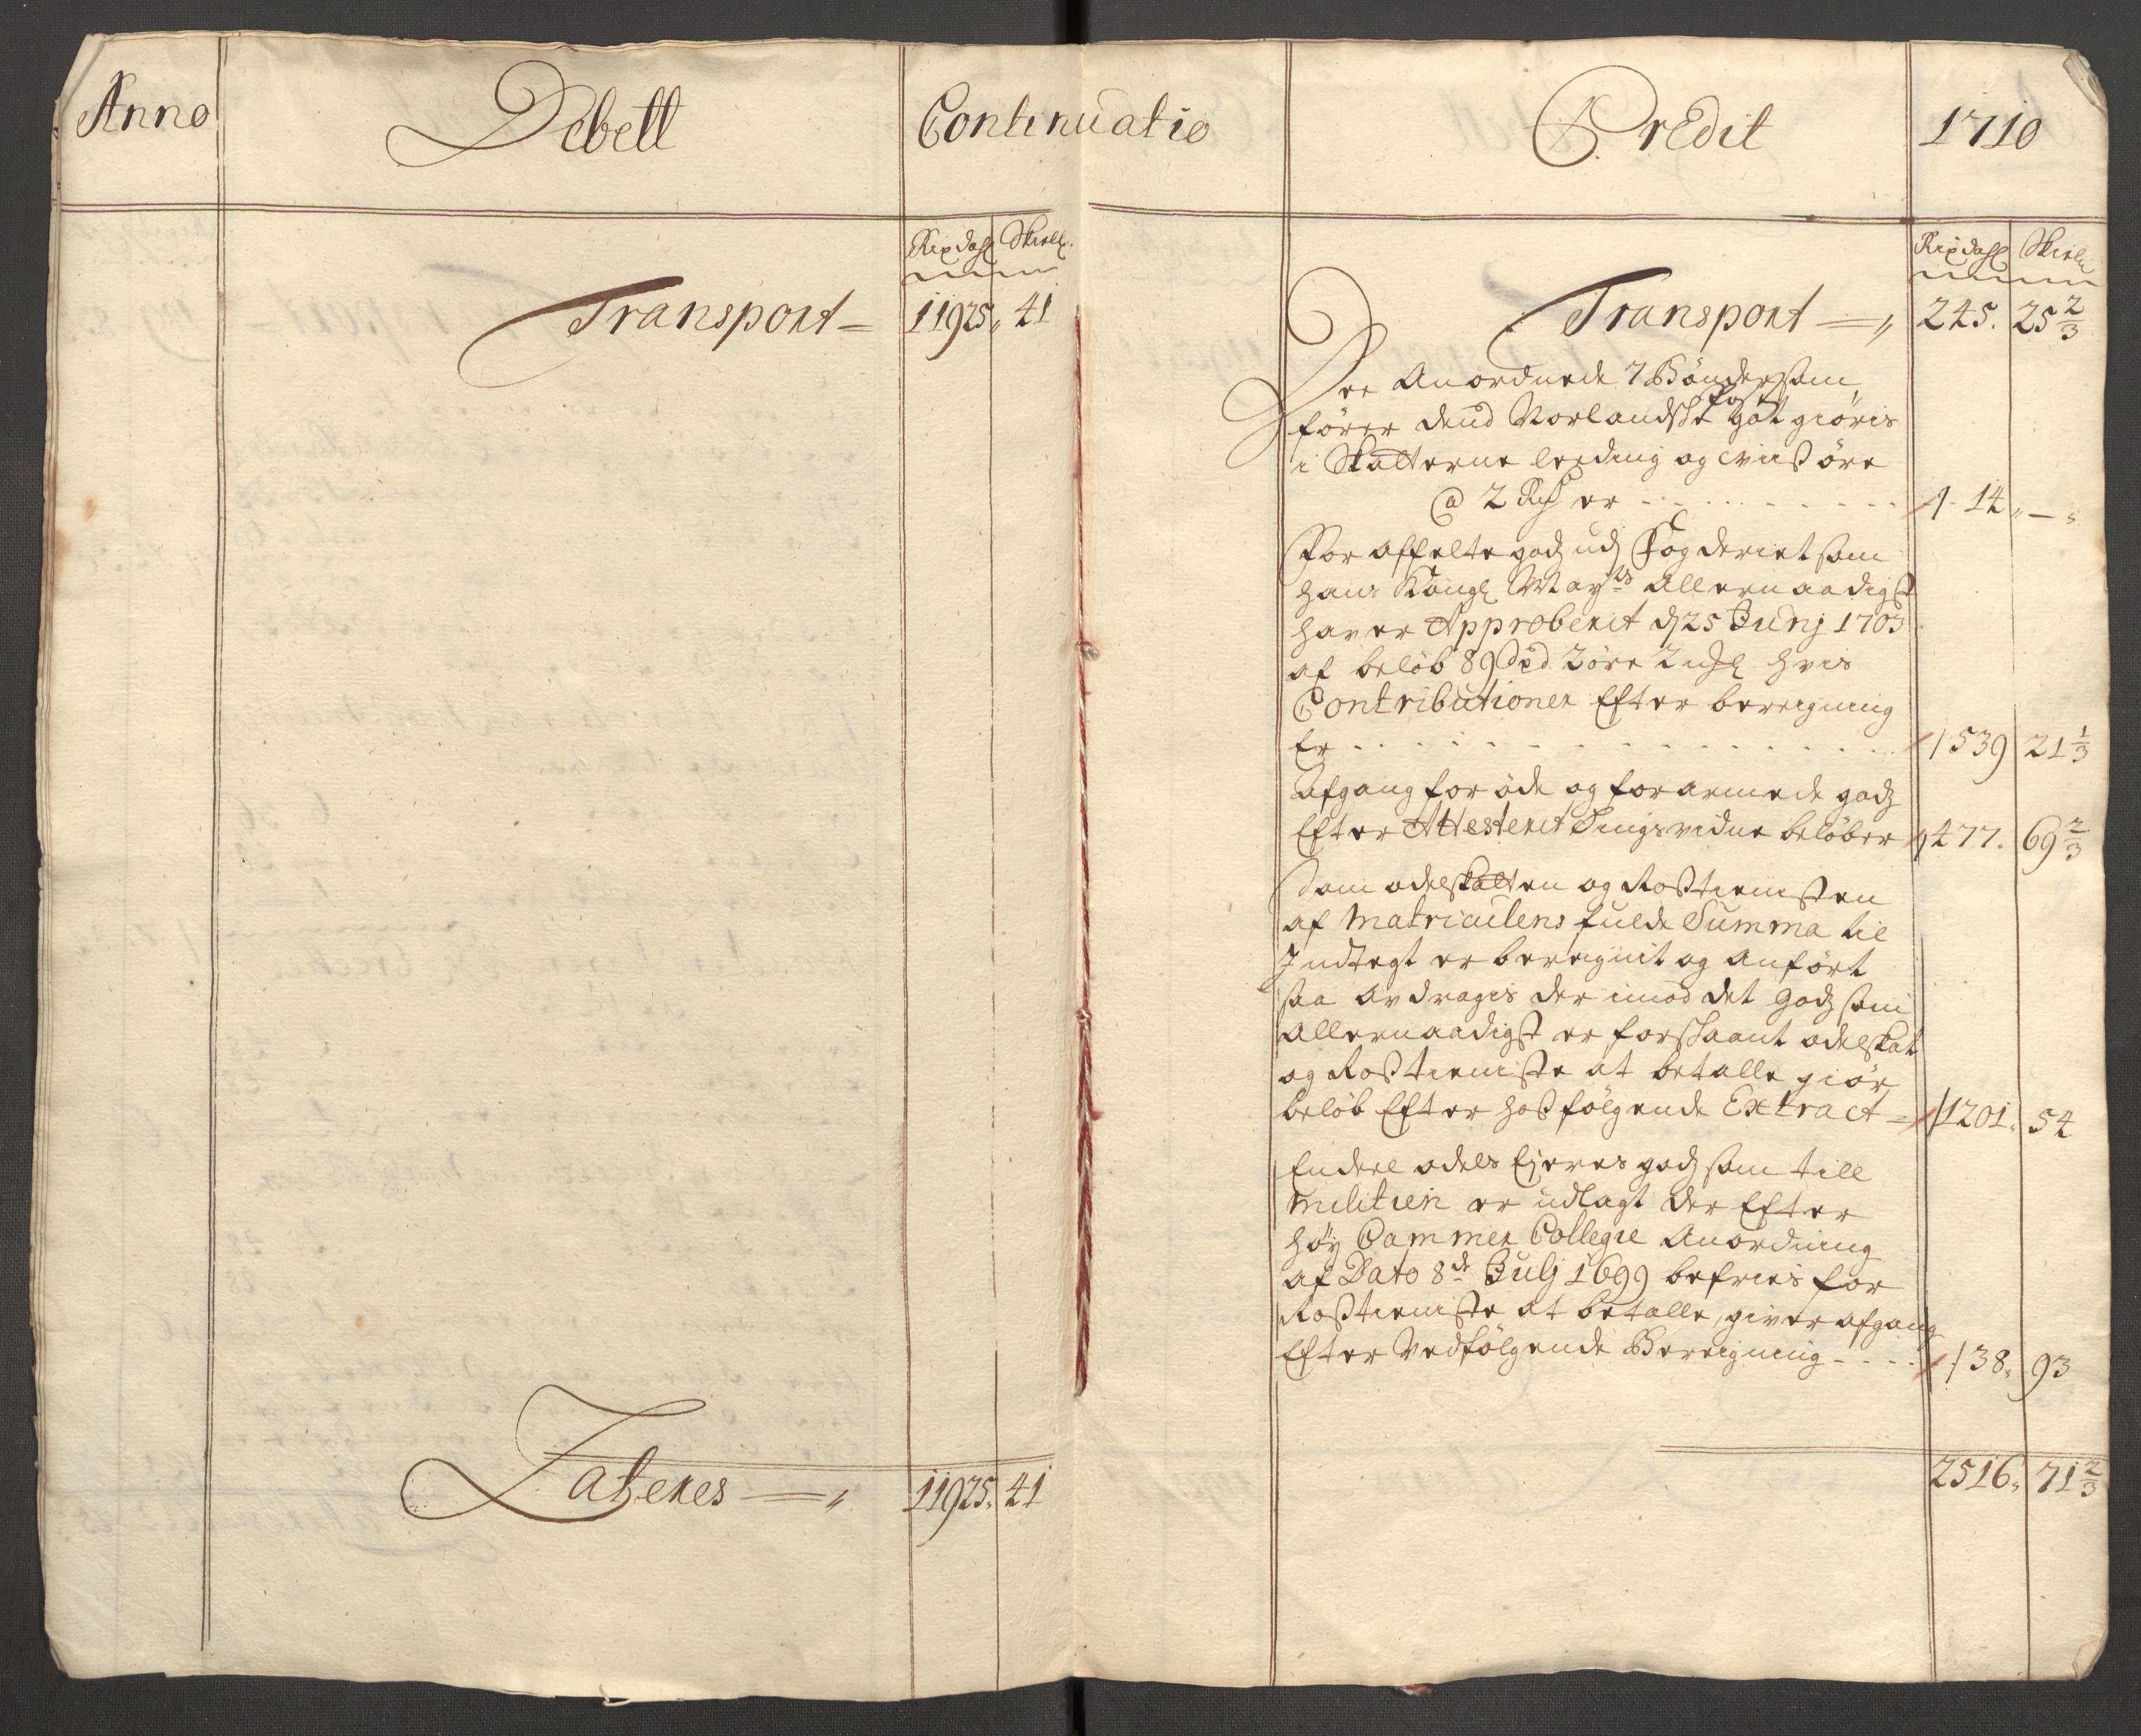 Anno
Debett
Continuatio
Credit
1710
Rixdahl Skiell.
Transport — 11925. 41
Lateres — 11925. 41
Rixdahl Skiell
Transport — 245. 25 2/3
De Anordnede 7 Bönder som
fører dend Norlandske post gott giøris
i Skatterne leeding og
a 2 Rd er - - - 14 „ — „
For affelte godz udj Fogderiet som
hans Kongl May.ts Allernaadigst
haver Approberit d 25 Junj 1703
af beløb 89 2 øre hvis
Contributioner Efter beregning
Er - - - 539 21 1/3
Afgang for øde og forarmede godz
Efter Attesterit Tingsvidne beløber 477. 69 2/3
Som odelskatten og Rostienisten
af Matriculens fulde Summa til
Indtegt er beregnit og anført
saa avdragis der imod det godz som
Allernaadigst er forskaant odelskat
og Rostieniste at betalle giør
beløb Efter hosfølgende Extract — 1201. 54
Endeel odels Ejeres godz som till
Militien er udlagt der Efter
høy Cammer Collegie Anordning
af Dato 8de Julj 1699 befries for
Rostieniste at betalle, giver afgang
Efter Vedfølgende Beregning - - - 38. 93
2516. 71 2/3